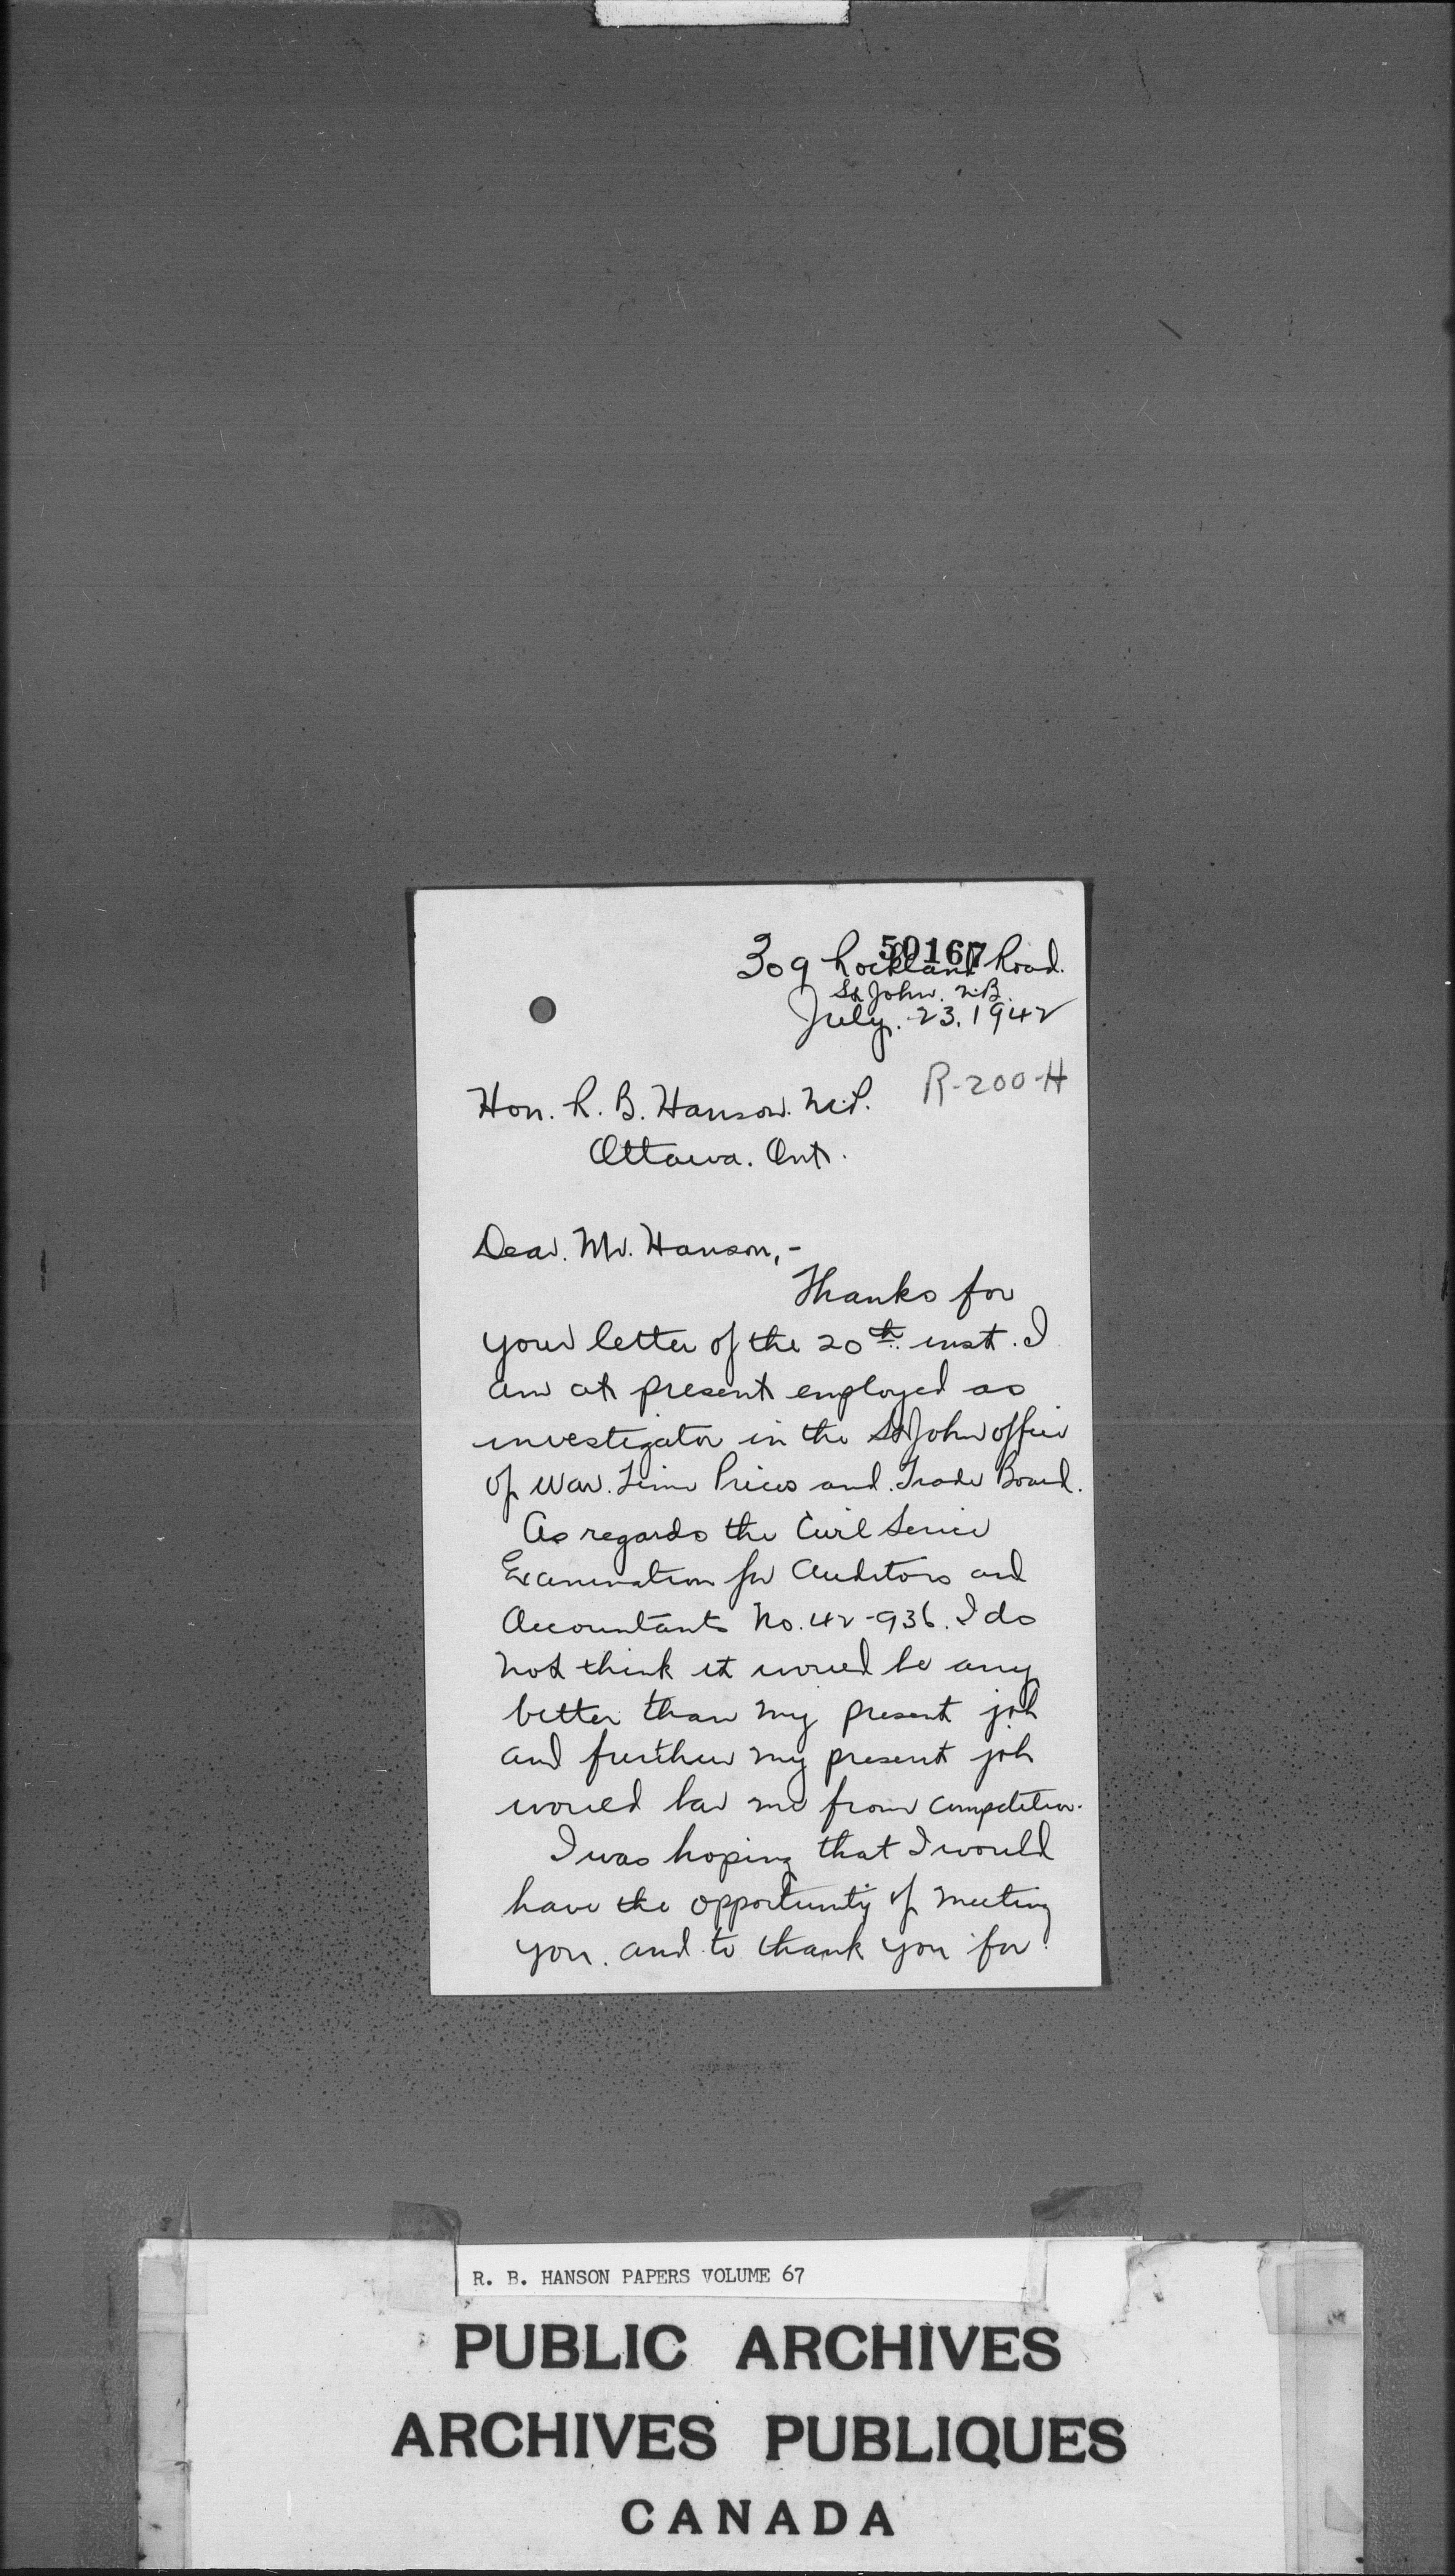 50167
309 Rockland Road.
St John. N.B.
July. 23. 1942
R-200-H
Hon. R. B. Hanson. M.P.
Ottawa. Ont.
Dear. Mr. Hanson,-
Thanks for
your letter of the 20th inst. I
am at present employed as
investigator in the St John office
of War. Time Prices and Trade Board.
As regards the Civil Service
Examination for Auditors and
Accountants No. 42-936. I do
not think it would be any
better than my present job
and further my present job
would bar me from competition.
I was hoping that I would
have the opportunity of meeting
you. and to thank you for
R. B. HANSON PAPERS VOLUME 67
PUBLIC ARCHIVES
ARCHIVES PUBLIQUES
CANADA